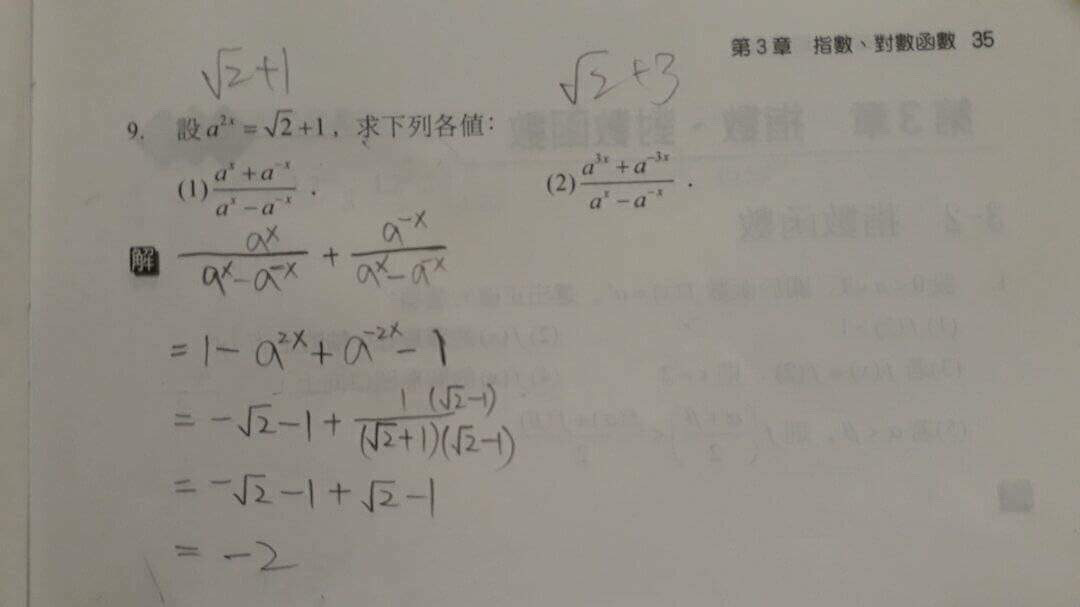 第3章 指數、對數函數 35
√2+1 √2+3
9. 設 a^{2x} = √2+1，求下列各值：
(1) (a^x + a^{-x})/(a^x - a^{-x}) . (2) (a^{3x} + a^{-3x})/(a^x - a^{-x}) .
解 a^x/(a^x - a^{-x}) + a^{-x}/(a^x - a^{-x})
= 1 - a^{2x} + a^{-2x} - 1
= -√2 - 1 + 1(√2-1)/((√2+1)(√2-1))
= -√2 - 1 + √2 - 1
= -2